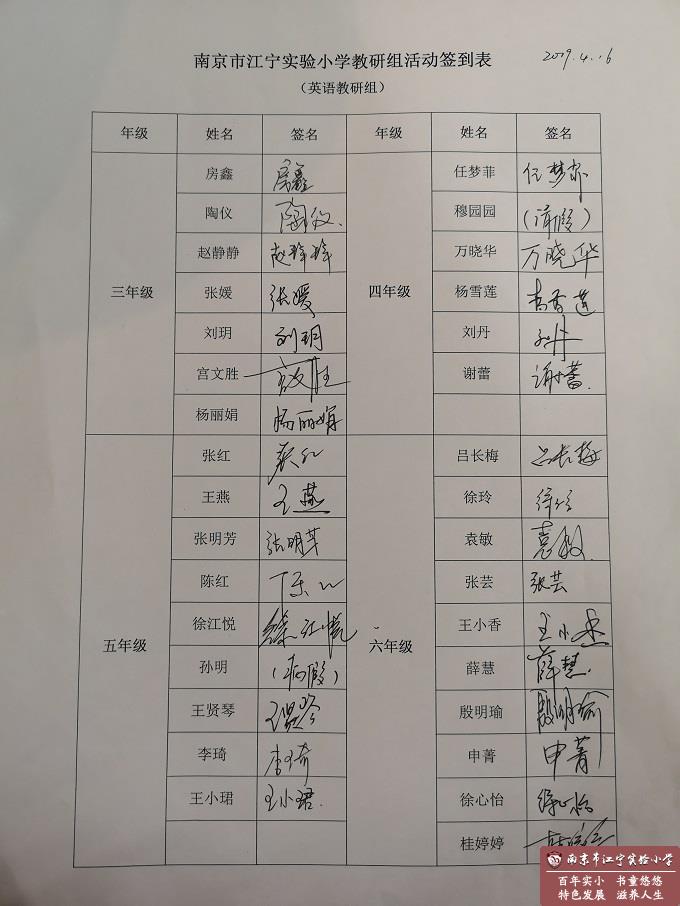 南京市江宁实验小学教研组活动签到表 2019.4.16
（英语教研组）
年级 姓名 签名 年级 姓名 签名
房鑫 房鑫 任梦菲 任梦菲
陶仪 陶仪. 穆园园 (请假)
赵静静 赵静静 万晓华 万晓华
三年级 张媛 张媛 四年级 杨雪莲 杨雪莲
刘玥 刘玥 刘丹 刘丹
宫文胜 宫文胜 谢蕾 谢蕾.
杨丽娟 杨丽娟
张红 张红 吕长梅 吕长梅
王燕 王燕 徐玲 徐玲
张明芳 张明芳 袁敏 袁敏.
陈红 陈红 张芸 张芸
五年级 徐江悦 徐江悦 六年级 王小香 王小香
孙明 (病假) 薛慧 薛慧.
王贤琴 王贤琴 殷明瑜 殷明瑜
李琦 李琦 申菁 申菁
王小珺 王小珺. 徐心怡 徐心怡
桂婷婷
南京市江宁实验小学
百年实小 书童悠悠
特色发展 滋养人生